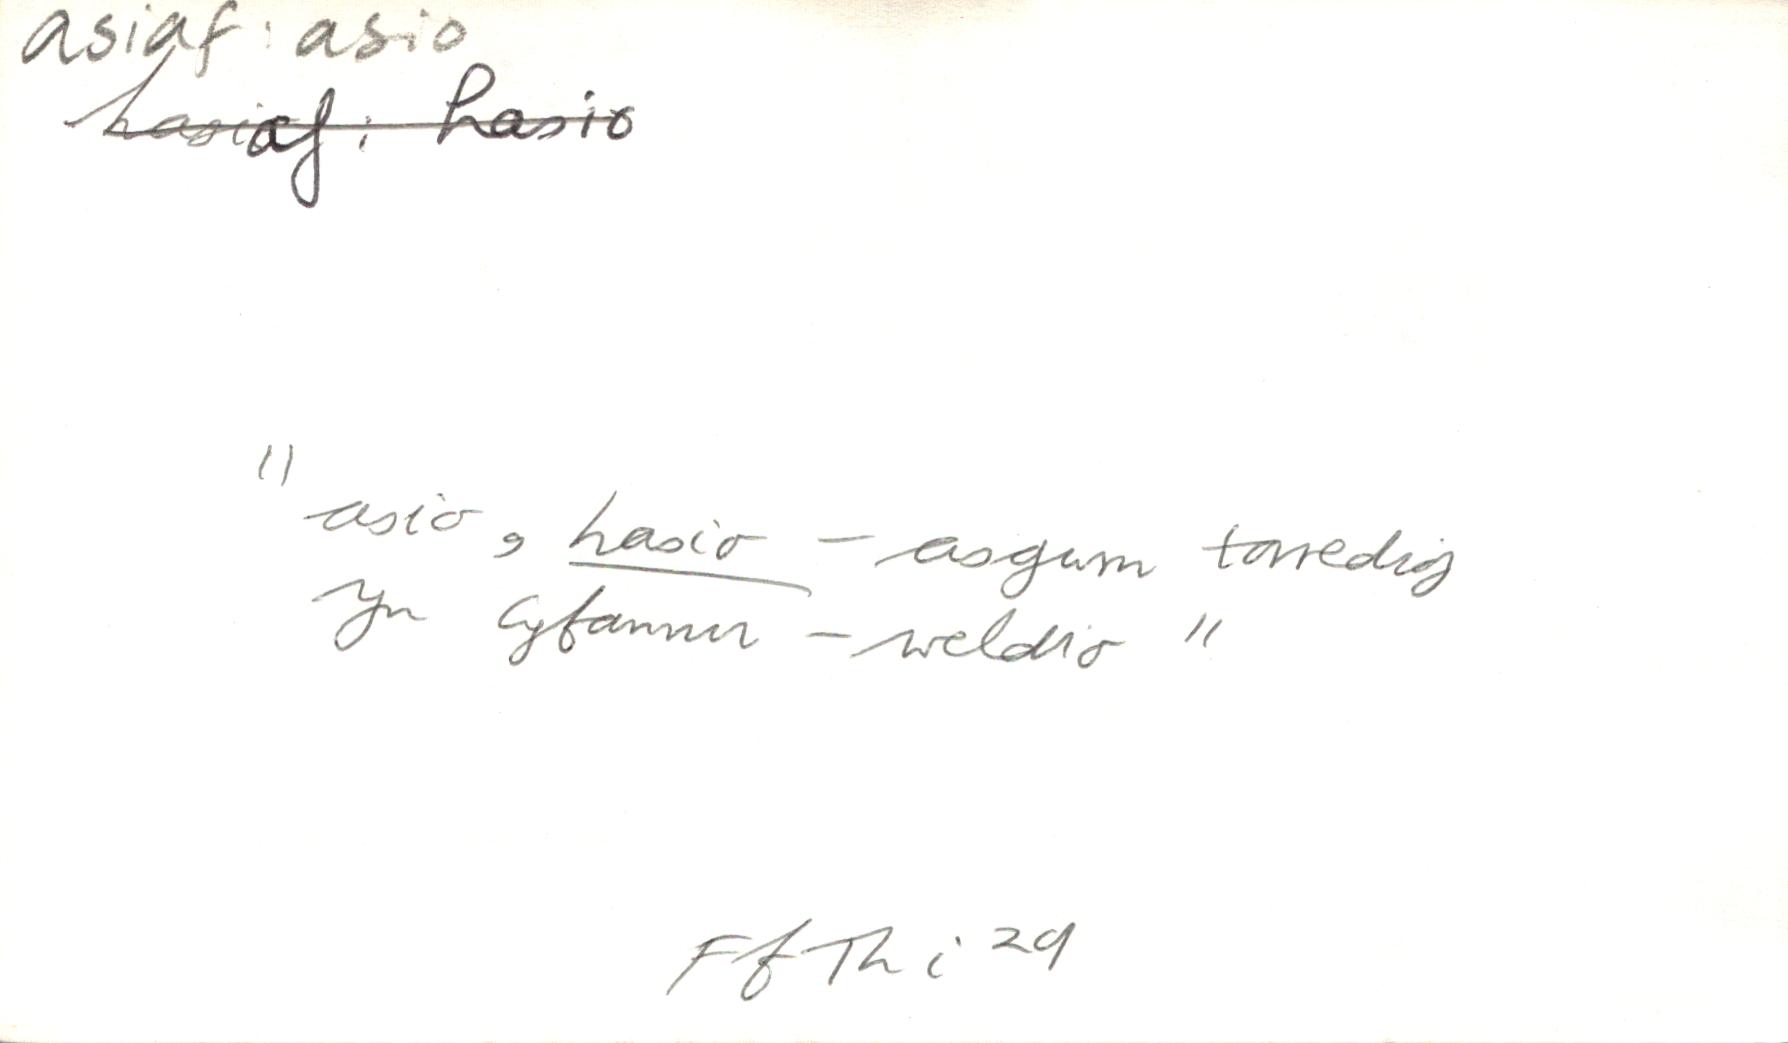 asiaf: asio
hasiaf: hasio
"asio, hasio - asgwrn torredig
yn cyfannu - weldio"
Ff Th i 29